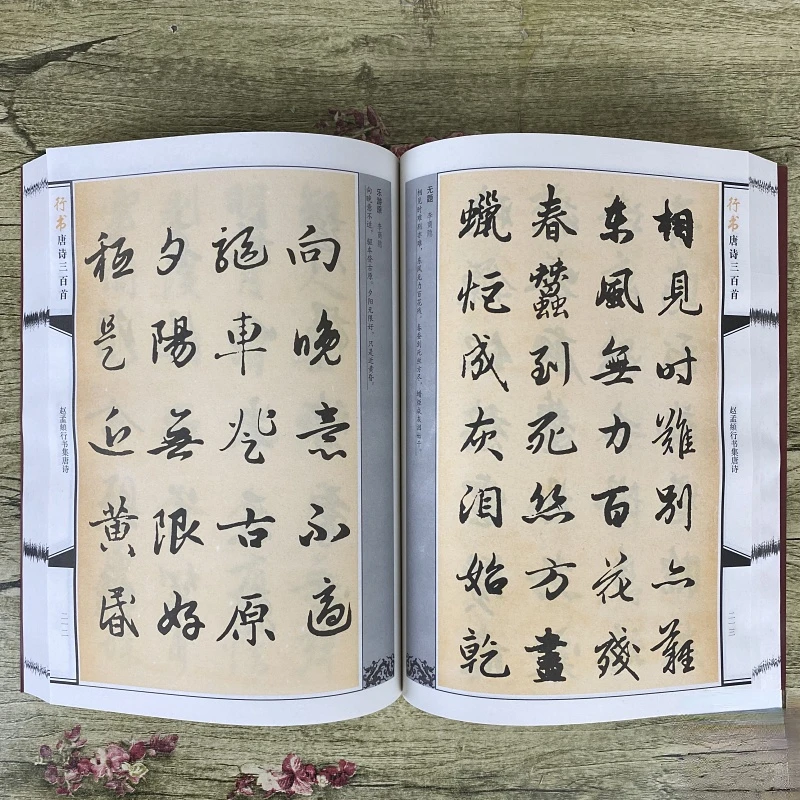 行书
唐诗三百首
赵孟頫行书集唐诗
乐游原 李商隐
向晚意不适，驱车登古原。夕阳无限好，只是近黄昏。
向晚意不適
驅車登古原
夕陽無限好
秖是近黃昏
无题 李商隐
相见时难别亦难，东风无力百花残。春蚕到死丝方尽，蜡炬成灰泪始干。
相見时難别亦難
東風無力百花殘
春蠶到死丝方盡
蠟炬成灰泪始乾
行书
唐诗三百首
赵孟頫行书集唐诗